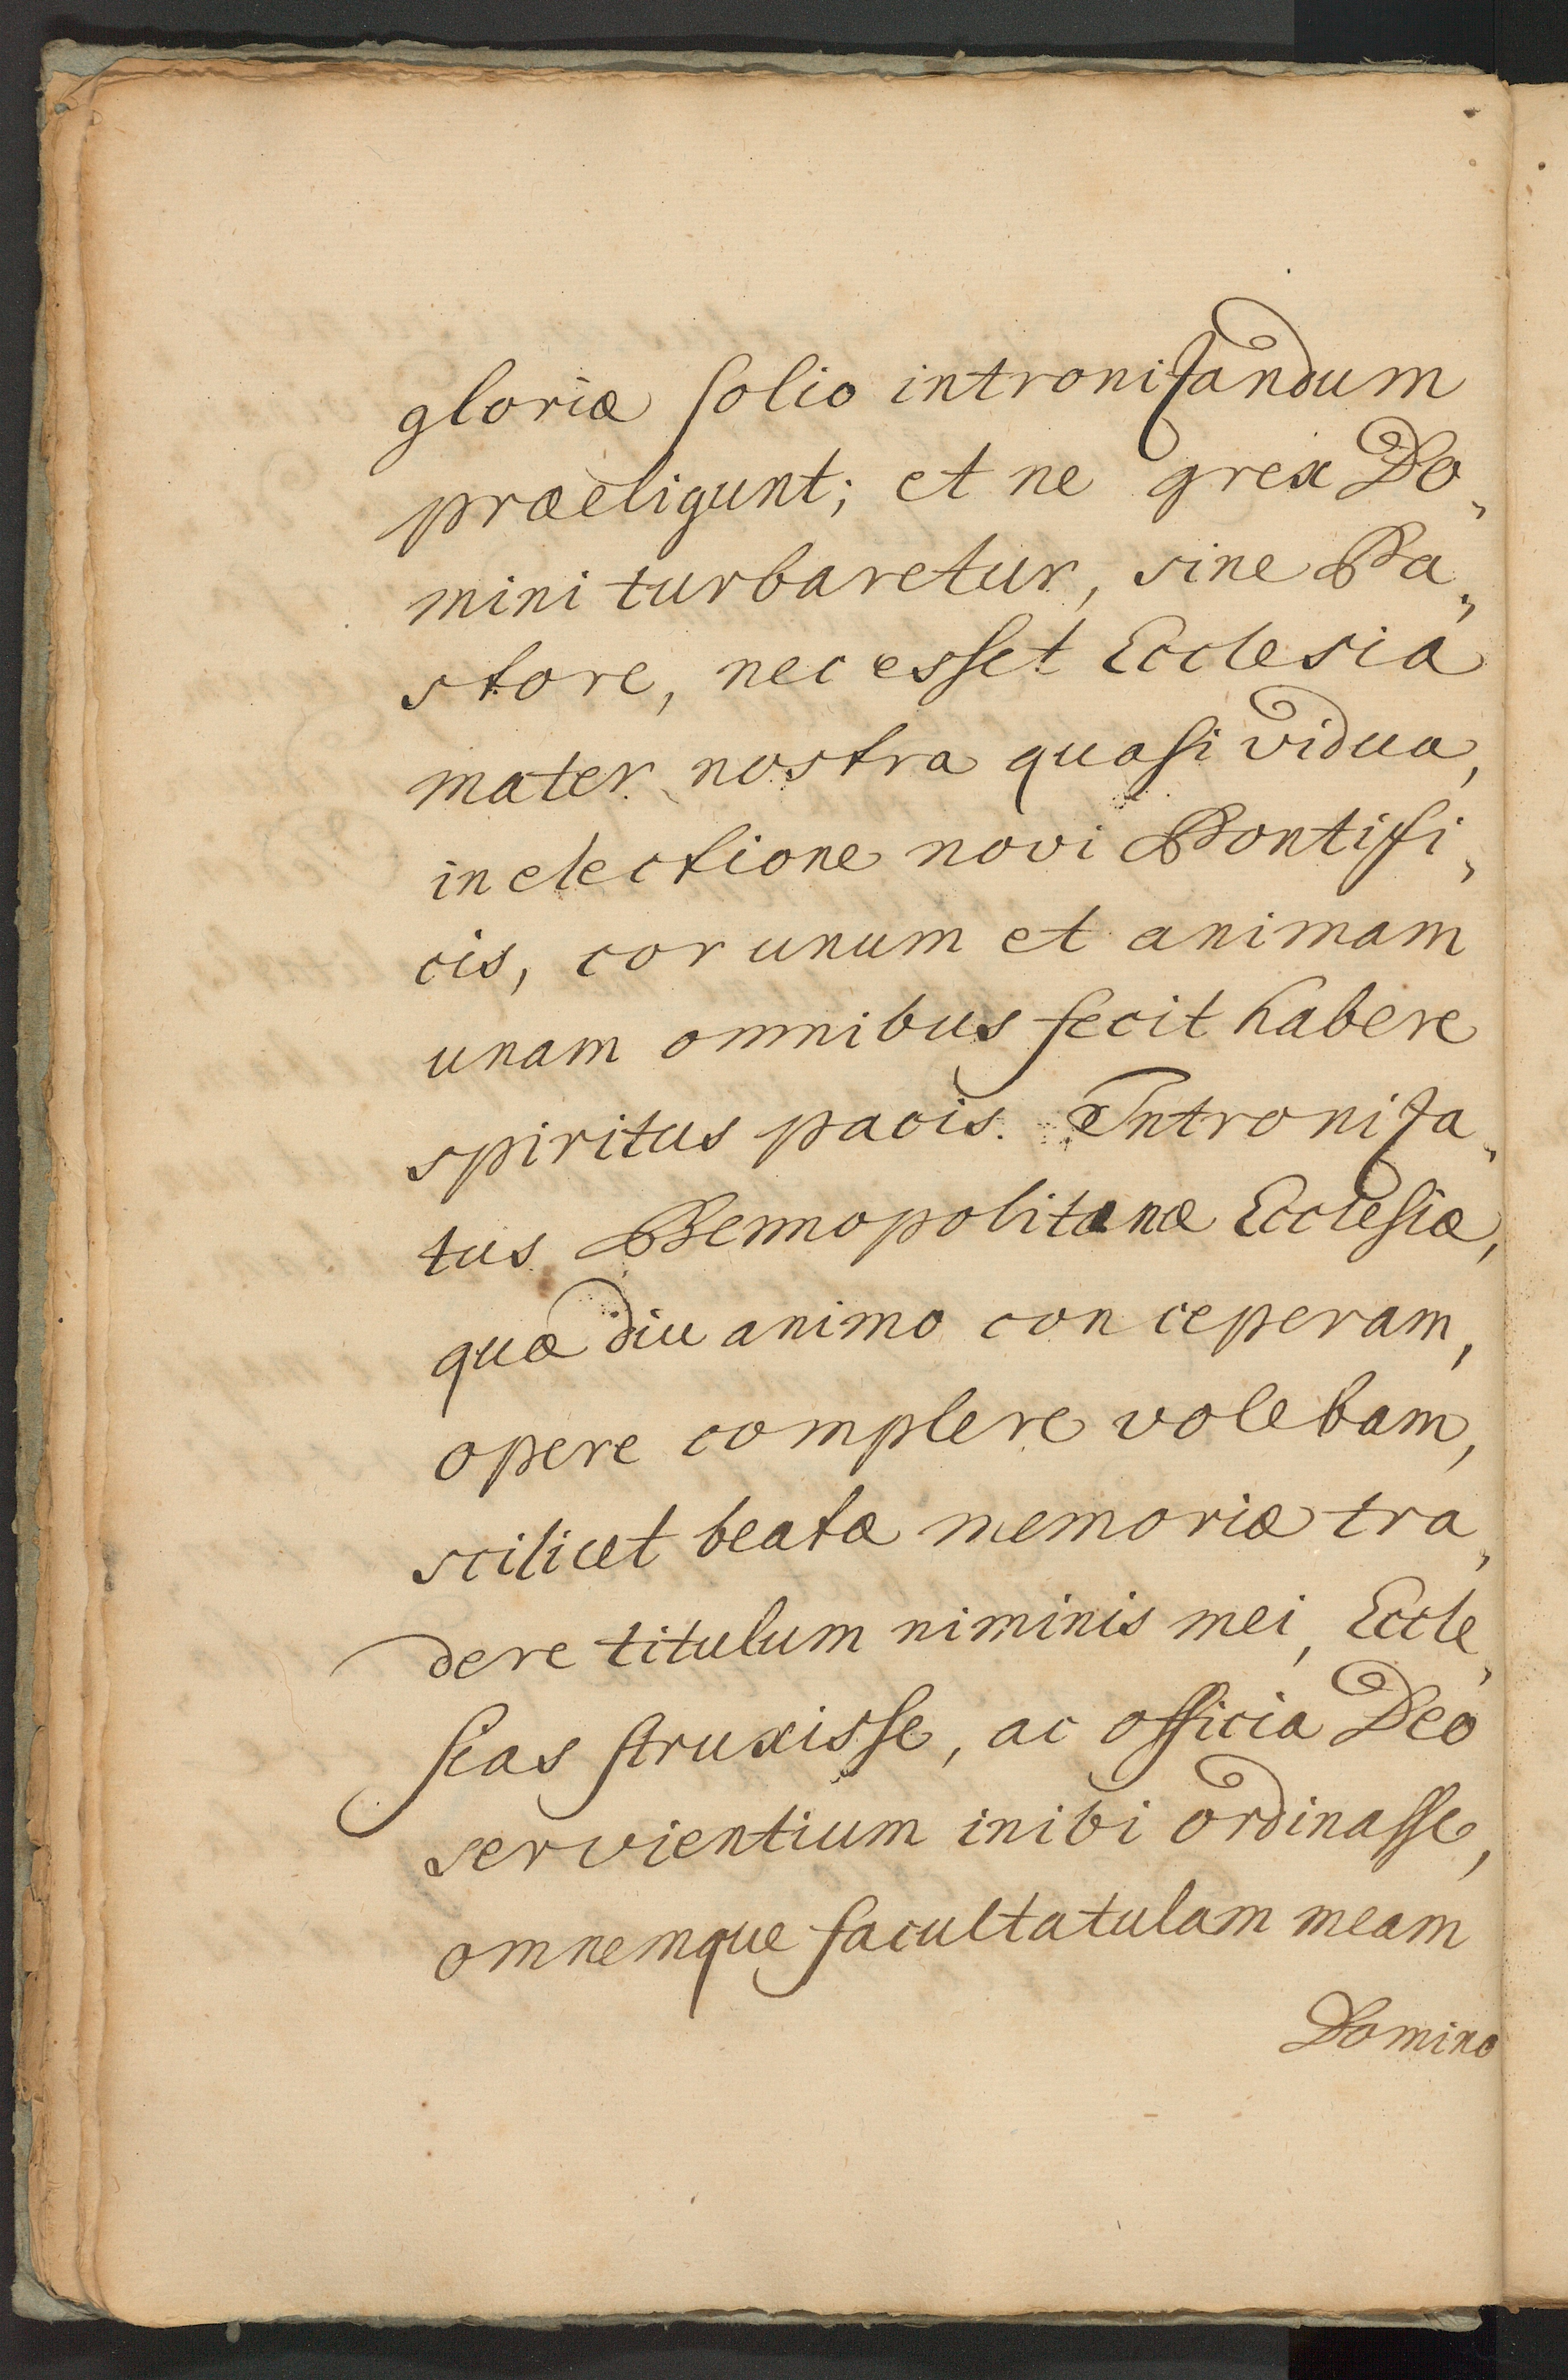 gloriæ ſolio introniſandum
præeligunt; et ne grex Do„
mini turbaretur, sine Pa„
store, nec esſet Ecclesia
mater nostra quaſi vidua,
in electione novi Pontifi„
cis, cor unum et animam
unam omnibus fecit habere
spiritus pacis. Introniſa„
tus Bennopolitanæ Eccleſiæ,
quæ diu animo conceperam,
opere complere volebam,
scilicet beatæ memoriæ tra„
dere titulum niminis mei, Eccle„
ſias ſtruxisſe, ac officia Deo
servientium inibi ordinaſſe,
omnemque facultatulam meam
Domino